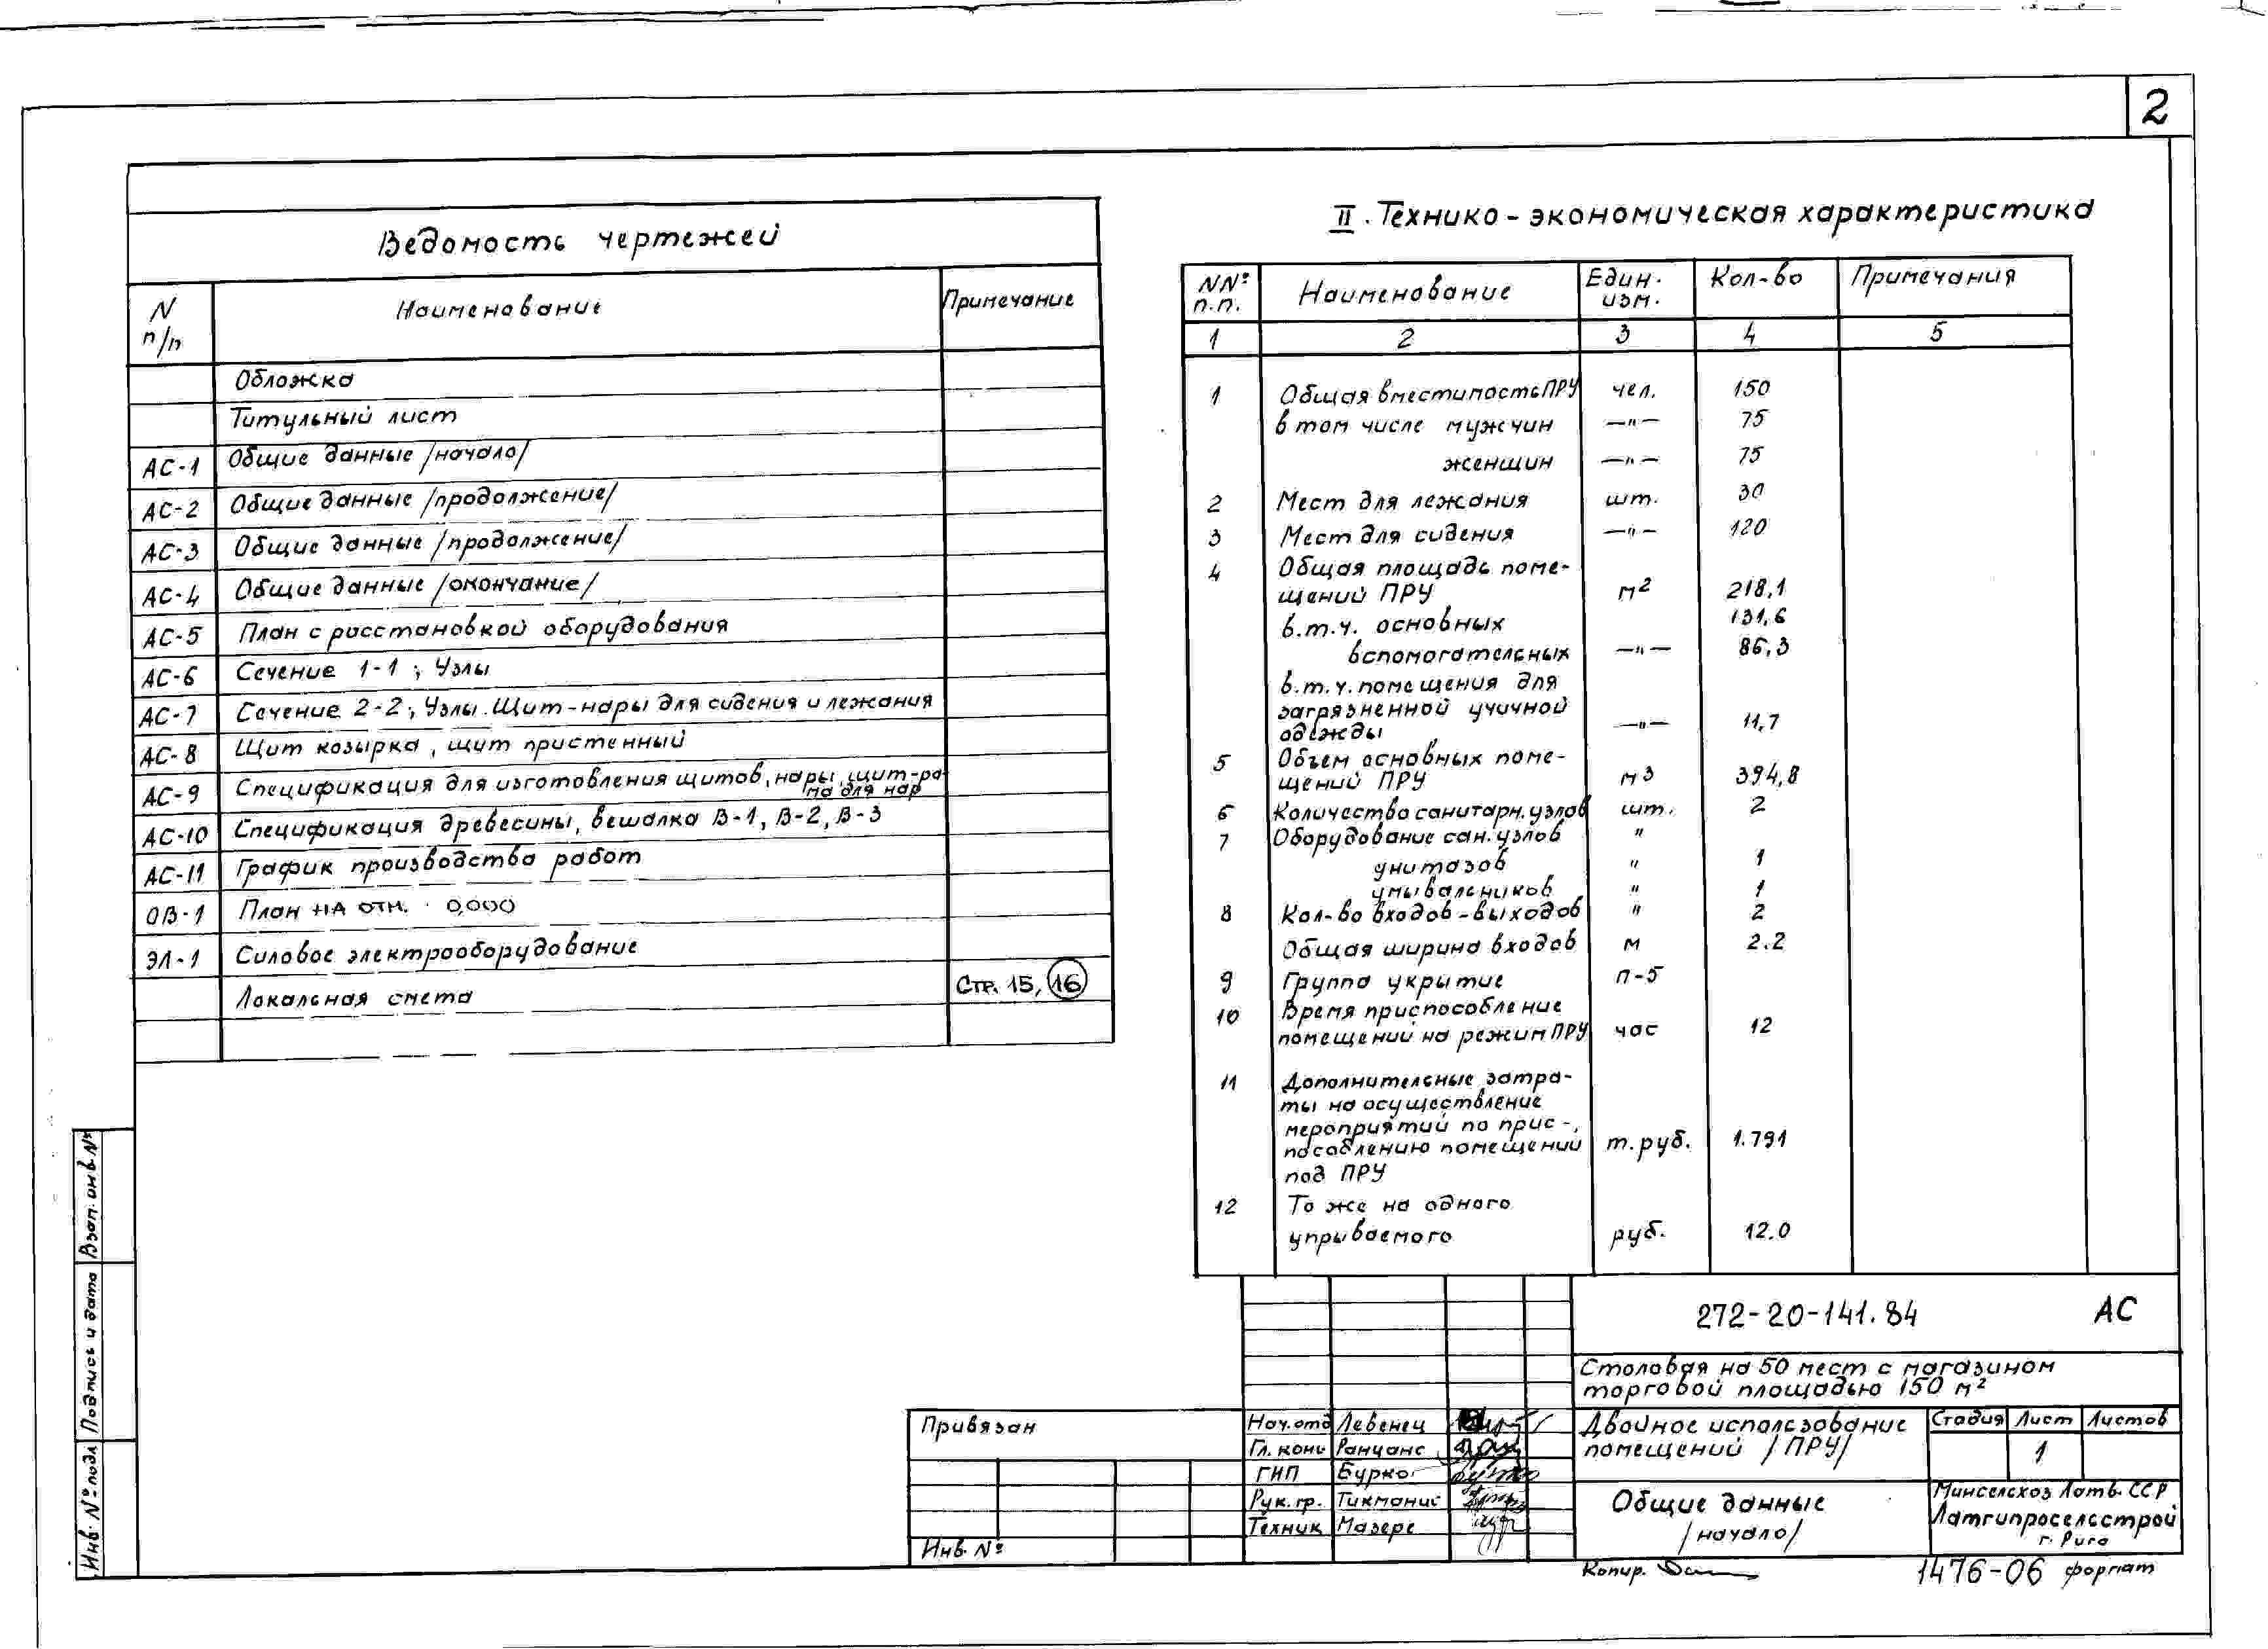 2
Ведомость чертежей
N п/п Наименование Примечание
Обложка
Титульный лист
АС-1 Общие данные /начало/
АС-2 Общие данные /продолжение/
АС-3 Общие данные /продолжение/
АС-4 Общие данные /окончание/
АС-5 План с расстановкой оборудования
АС-6 Сечение 1-1; Узлы
АС-7 Сечение 2-2; Узлы. Щит-нары для сидения и лежания
АС-8 Щит козырка, щит пристенный
АС-9 Спецификация для изготовления щитов, нары, щит-ра-
ма для нар
АС-10 Спецификация древесины, вешалка В-1, В-2, В-3
АС-11 График производства работ
ОВ-1 План на отм. 0,000
ЭЛ-1 Силовое электрооборудование
Локальная смета Стр. 15, 16
II. Технико-экономическая характеристика
NNº п.п. Наименование Един. изм. Кол-во Примечания
1 2 3 4 5
1 Общая вместимость ПРУ чел. 150
в том числе мужчин —"— 75
женщин —"— 75
2 Мест для лежания шт. 30
3 Мест для сидения —"— 120
4 Общая площадь поме-
щений ПРУ м2 218,1
в.т.ч. основных 131,6
вспомогательных —"— 86,3
в.т.ч. помещения для
загрязненной учичной
одежды —"— 11,7
5 Объем основных поме-
щений ПРУ м3 394,8
6 Количество санитарн. узлов шт. 2
7 Оборудование сан. узлов "
унитазов " 1
умывальников " 1
8 Кол-во входов-выходов " 2
Общая ширина входов м 2.2
9 Группа укрытие п-5
10 Время приспособление
помещений на режим ПРУ час 12
11 Дополнительные затра-
ты на осуществление
мероприятий по прис-
пособлению помещений т.руб. 1.791
под ПРУ
12 То же на одного
упрываемого руб. 12.0
272-20-141.84 АС
Столовая на 50 мест с магазином
торговой площадью 150 м2
Двойное использование
помещений /ПРУ/
Стадия Лист Листов
1
Общие данные
/начало/
Минсельхоз Латв. ССР
Латгипросельстрой
г. Рига
Привязан
Инв. Nº
Нач. отд Левенец
Гл. конс Ранцанс
ГИП Бурко
Рук. гр. Тикманис
Техник Мазере
Копир.
1476-06 формат
Взам. инв. Nº
Подпись и дата
Инв. Nº подл